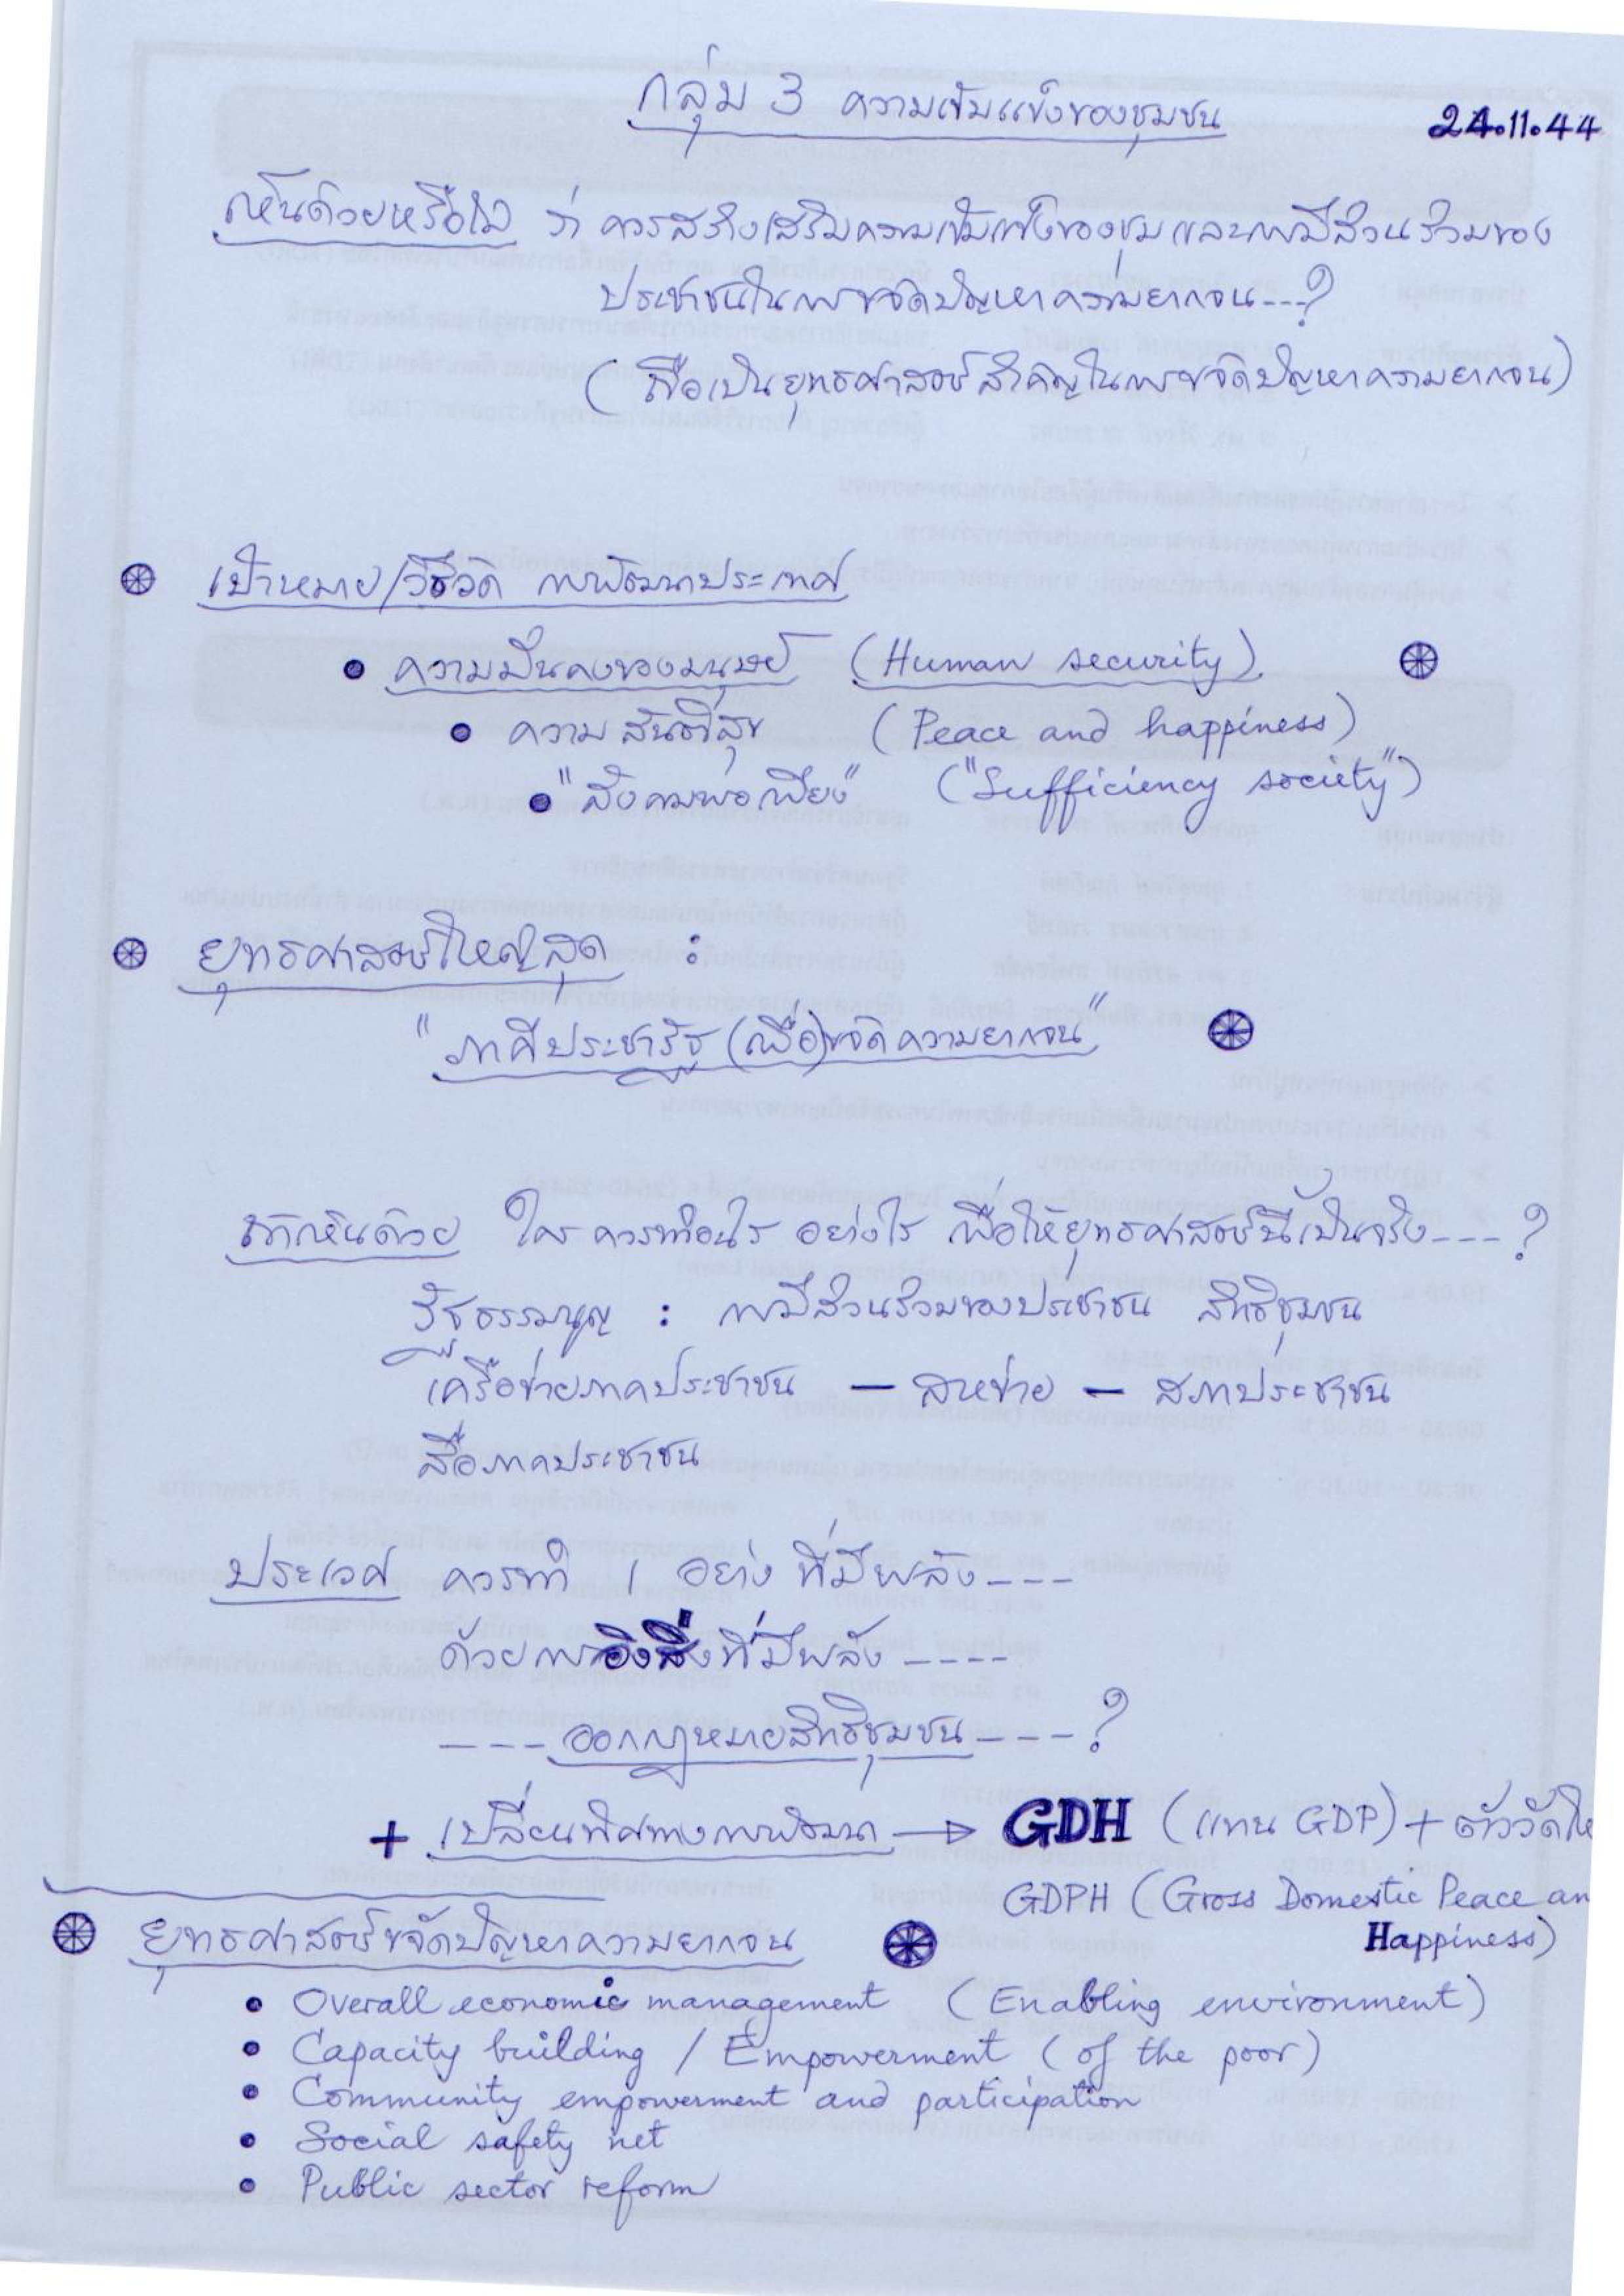 กลุ่ม 3 ความเข้มแข็งของชุมชน
24.11.44
เห็นด้วยหรือไม่ ว่า ควรสร้างเสริมความเข้มแข็งของชุม และการมีส่วนร่วมของ
ประชาชนในการขจัดปัญหาความยากจน---?
(เพื่อเป็นยุทธศาสตร์สำคัญในการขจัดปัญหาความยากจน)
เป้าหมาย/วิธีวัด การพัฒนาประเทศ
• ความมั่นคงของมนุษย์ (Human security)
• ความสันติสุข (Peace and happiness)
• "สังคมพอเพียง" ("Sufficiency society")
ยุทธศาสตร์ใหญ่สุด :
"ภาคีประชารัฐ (เพื่อ)ขจัดความยากจน"
ถ้าเห็นด้วย ใคร ควรทำอะไร อย่างไร เพื่อให้ยุทธศาสตร์นี้เป็นจริง---?
รัฐธรรมนูญ : การมีส่วนร่วมของประชาชน สิทธิชุมชน
เครือข่ายภาคประชาชน – สหข่าย – สภาประชาชน
สื่อภาคประชาชน
ประเวศ ควรทำ 1 อย่าง ที่มีพลัง---
ด้วยการอิงสิ่งที่มีพลัง----
---ออกกฎหมายสิทธิชุมชน----?
+ เปลี่ยนทิศทางการพัฒนา → GDH (แทน GDP) + ตัววัดให
GDPH (Gross Domestic Peace an
Happiness)
ยุทธศาสตร์ขจัดปัญหาความยากจน
• Overall economic management (Enabling environment)
• Capacity building / Empowerment (of the poor)
• Community empowerment and participation
• Social safety net
• Public sector reform